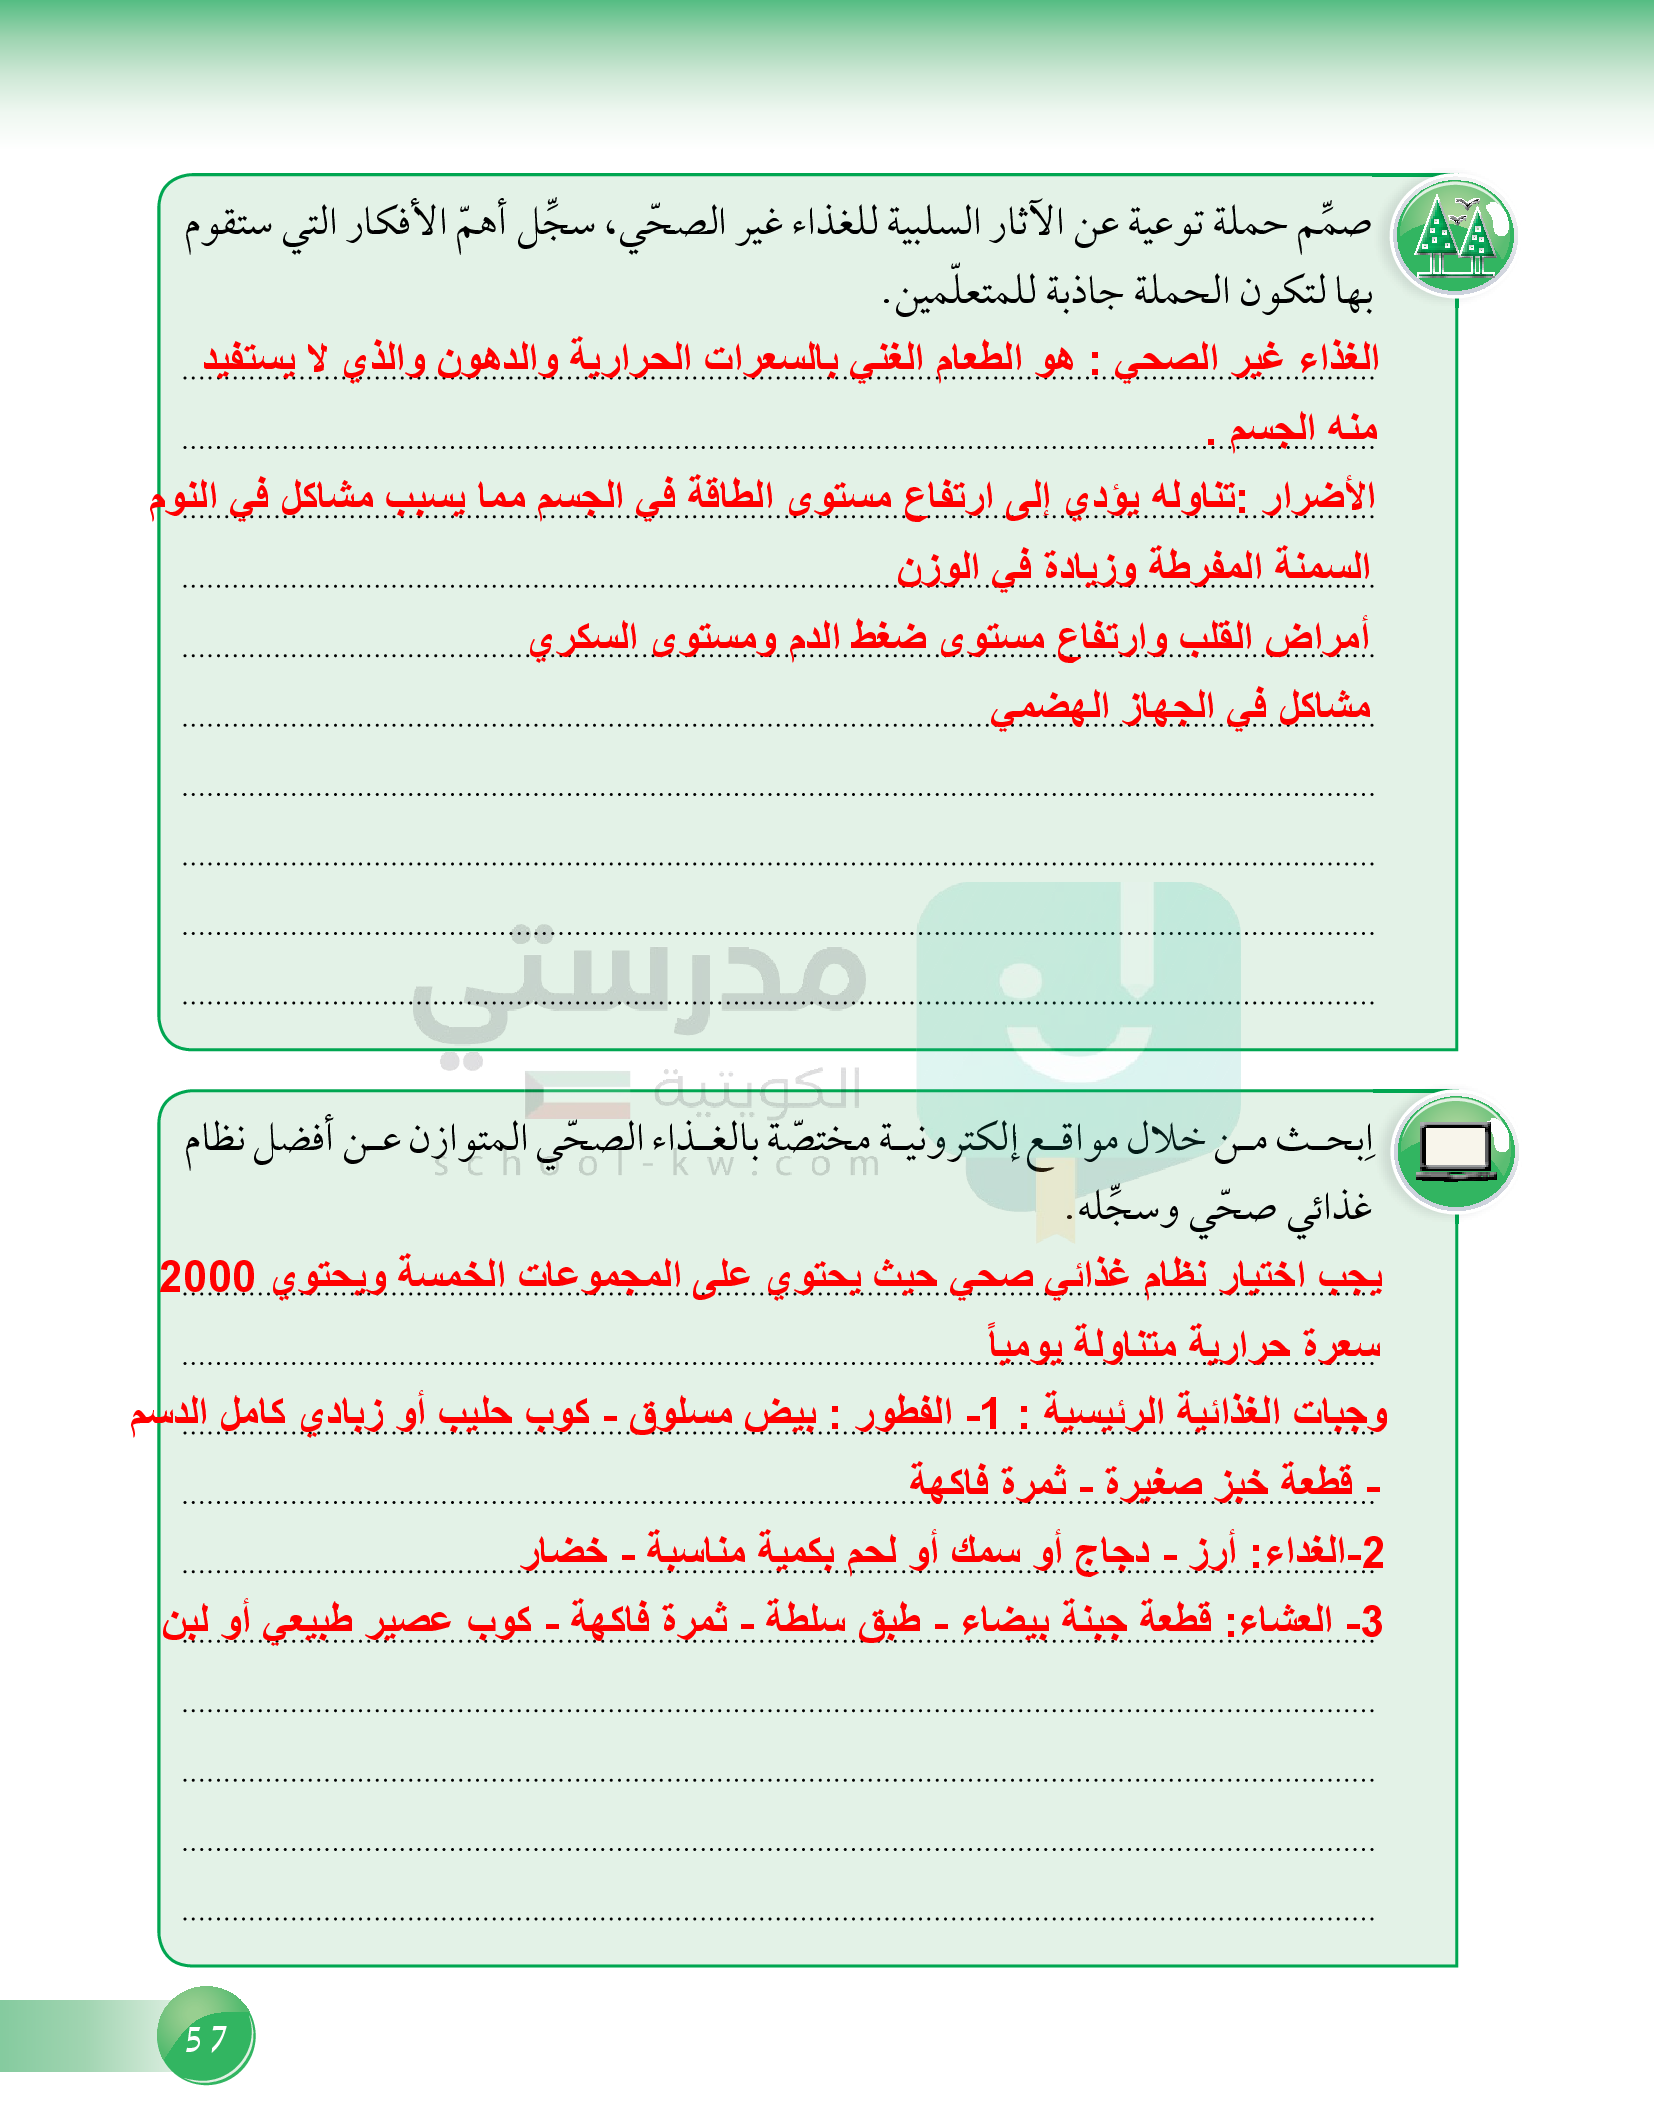 صمِّم حملة توعية عن الآثار السلبية للغذاء غير الصحّي، سجِّل أهمّ الأفكار التي ستقوم
بها لتكون الحملة جاذبة للمتعلّمين.
الغذاء غير الصحي : هو الطعام الغني بالسعرات الحرارية والدهون والذي لا يستفيد
منه الجسم .
الأضرار :تناوله يؤدي إلى ارتفاع مستوى الطاقة في الجسم مما يسبب مشاكل في النوم
السمنة المفرطة وزيادة في الوزن
أمراض القلب وارتفاع مستوى ضغط الدم ومستوى السكري
مشاكل في الجهاز الهضمي
مدرستي
الكويتية
school-kw.com
اِبحث من خلال مواقع إلكترونية مختصّة بالغذاء الصحّي المتوازن عن أفضل نظام
غذائي صحّي وسجِّله.
يجب اختيار نظام غذائي صحي حيث يحتوي على المجموعات الخمسة ويحتوي 2000
سعرة حرارية متناولة يومياً
وجبات الغذائية الرئيسية : 1- الفطور : بيض مسلوق - كوب حليب أو زبادي كامل الدسم
- قطعة خبز صغيرة - ثمرة فاكهة
2-الغداء: أرز - دجاج أو سمك أو لحم بكمية مناسبة - خضار
3- العشاء: قطعة جبنة بيضاء - طبق سلطة - ثمرة فاكهة - كوب عصير طبيعي أو لبن
57